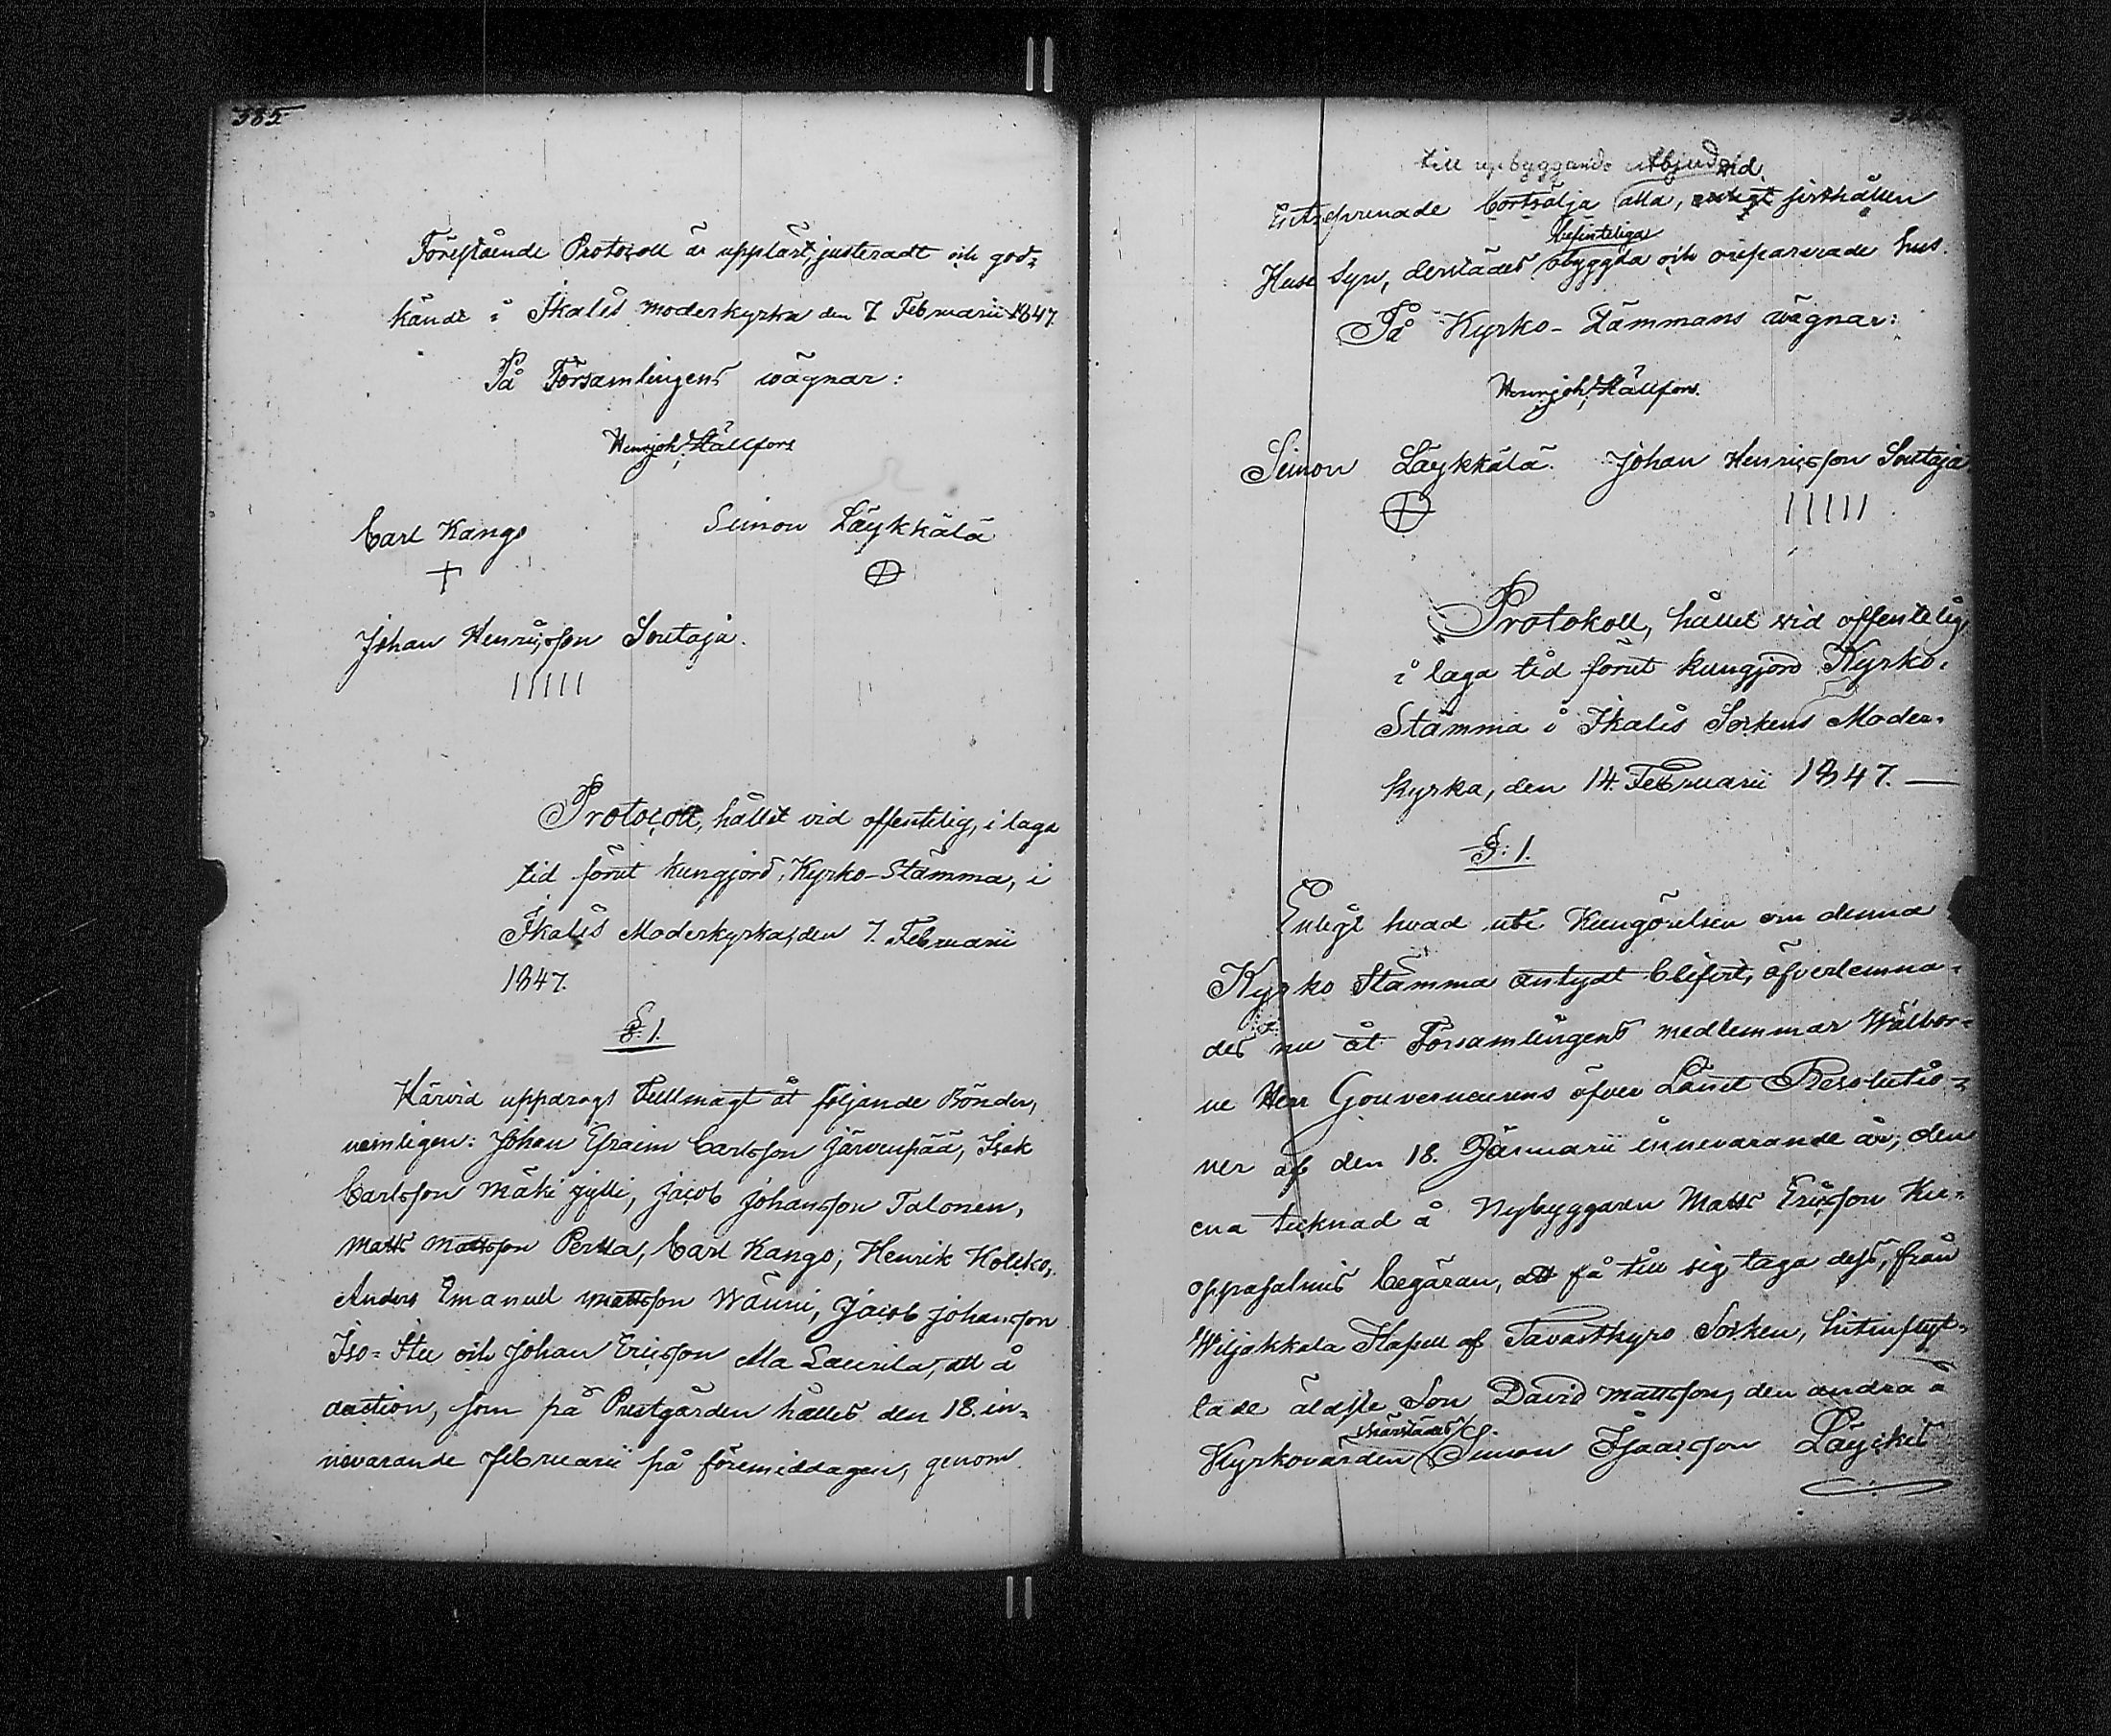 385
Föreståënde Protocoll är uppläst, justeradt och god-
kändt i Ikalis Moderkyrka den 7 Februarii 1847.
På Församlingens wägnar:
Henr Joh: Hällfors
Carl Kango Simon Läykkälä
Johan Henricsson Soutaja.
Protocoll, hållet vid offentelig, i laga
tid förut kungjord, Kyrko-Stämma, i
Ikalis Moderkyrka, den 7. Februarii
1847.
§. 1.
Härvid uppdrogs Fullmagt åt följande Bönder,
nemligen: Johan Efraim Carlsson Järvenpää, Isak
Carlsson Mäki Jylli, Jacob Johansson Talonen,
Matts Mattsson Perka, Carl Kango, Henrik Holiko,
Anders Emanuel Mattsson Wänni, Jacob Johansson
Iso-Iku och Johan Ericsson Ala Laurila, att å
auction, som på Prestgården hålles den 18. in-
nevarande Februarii på föremiddagen, genom
till upbyggande utbjuda vid
Entreprenade bortsälja alla, sisthållen
befinteliga
Huse Syn, derstädes obyggda och oreparerade hus.
På Kyrko-Stämmans wägnar:
Henr Joh: Hällfors.
Simon Läykkälä. Johan Henricsson Soutaja
Protokoll, hållet vid offentelig,
i laga tid förut kungjord Kyrko-
Stämma i Ikalis Sockens Moder-
kyrka, den 14. Februarii 1847. —
§: 1.
Enligt hvad uti Kungörelsen om denna
Kyrko Stämma antydt blifvit, öfverlemna-
des nu åt Församlingens medlemmar Wälbor-
ne Herr Gouverneurens öfver Länet Resolutio-
ner af den 18. Januarii innevarande år, den
ena tecknad å Nybyggaren Matts Ericsson Ku-
oppasalmis begäran, att få till sig taga dess, från
Wiljakkala Kapell af Tavastkyro Socken, hitinflyt-
tade äldste Son David Mattsson, den andra å
härstädes
Kyrkovärden Simon Isaacsson Läyckis